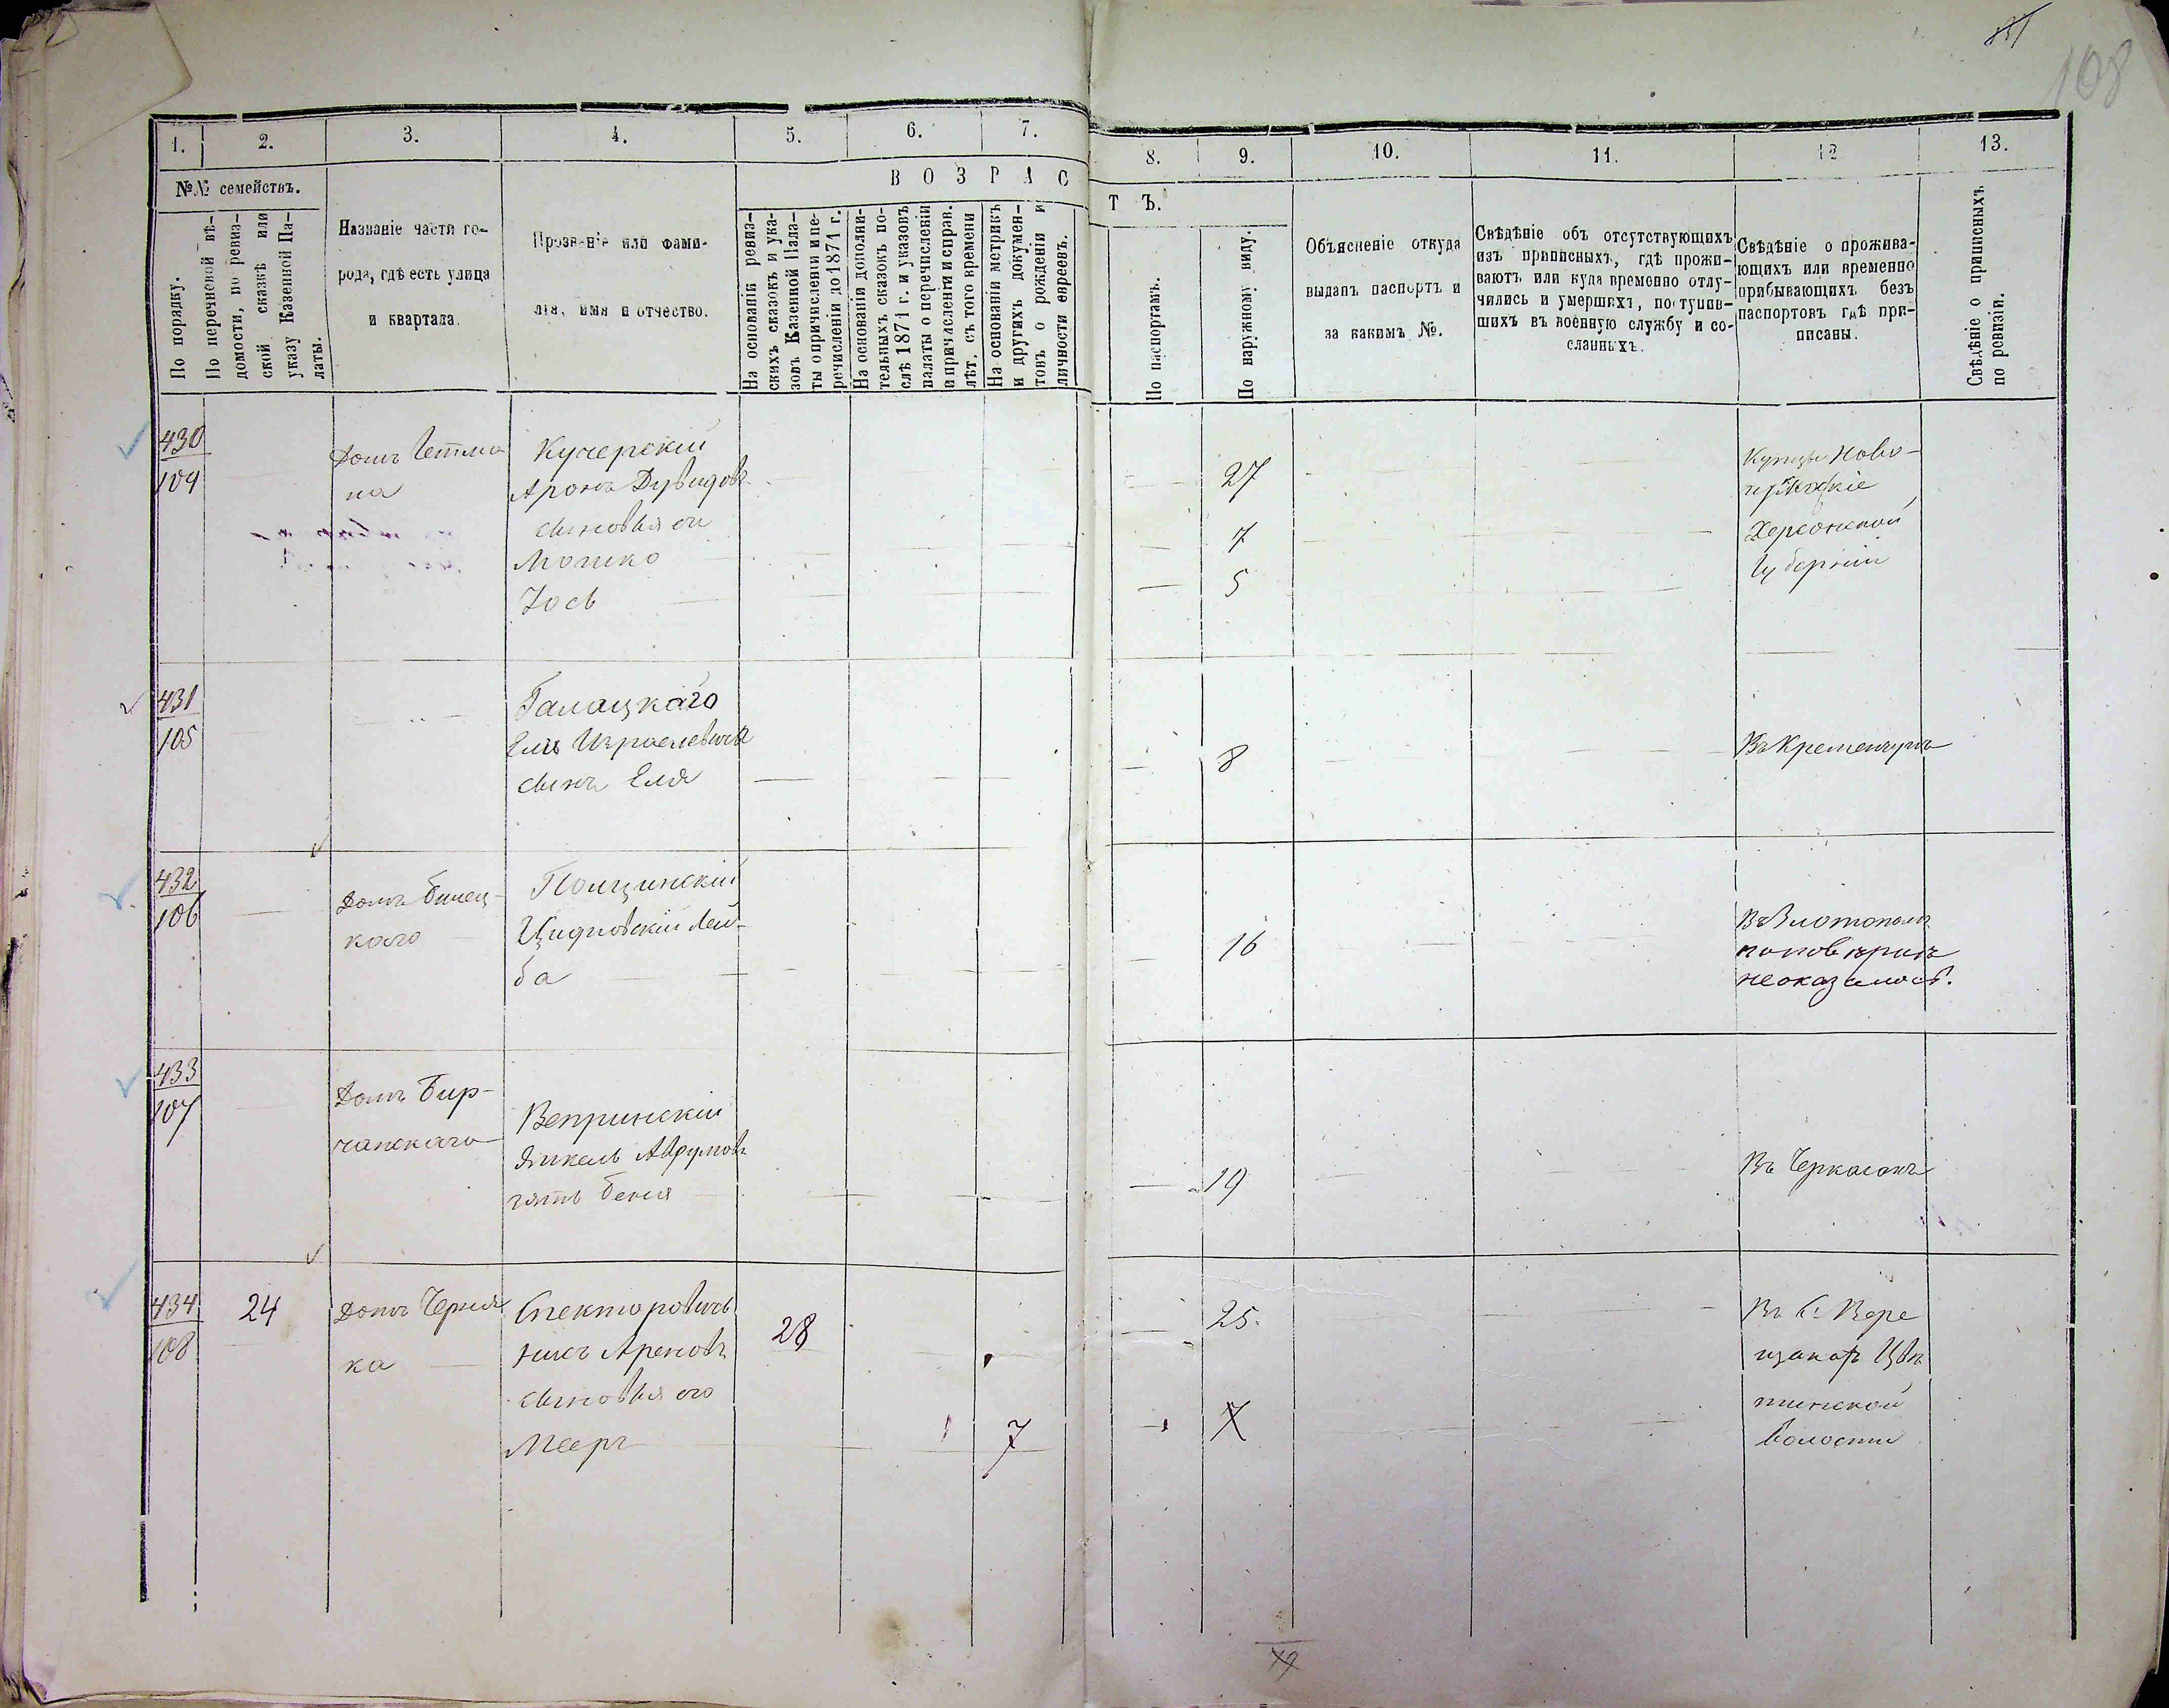 108
1.
2.
3.
4.
5.
6.
7.
8.
9.
10.
11.
12
13.
№№ семействъ.
По порядку.
По перечневой вѣ-
домости, по ревиз-
ской сказкѣ или
указу Казенной Па-
латы.
Названіе части го-
рода, гдѣ есть улица
и квартала.
Прозваніе или фами-
лія, имя и отчество.
ВОЗРАСТЪ.
На основаніи ревиз-
скихъ сказокъ и ука-
зовъ Казенной Пала-
ты о причисленіи и пе-
речисленіи до 1871 г.
На основаніи дополни-
тельныхъ сказокъ по-
слѣ 1871 г. и указовъ
палаты о перечисленіи
и причисленіи и справ.
лѣт, съ того времени
На основаніи метрикъ
и другихъ докумен-
товъ о рожденіи и
личности евреевъ.
По паспортамъ.
По наружному виду.
Объясненіе откуда
выданъ паспортъ и
за какимъ №.
Свѣдѣніе объ отсутствующихъ
изъ приписныхъ, гдѣ прожи-
ваютъ или куда временно отлу-
чились и умершихъ, поступив-
шихъ въ военную службу и со-
сланныхъ.
Свѣдѣніе о прожива-
ющихъ или временно
прибывающихъ безъ
паспортовъ гдѣ при-
писаны.
Свѣдѣніе о приписныхъ
по ревизіи.
430
104
Домъ Гетма
на
Кучерскій
Аронъ Дувидовъ
сыновья его
Мошко
Іось
27
7
5
Купцы Ново-
Херсонской
Губерніи
431
105
Галацкаго
Еля Израелевича
сынъ Еля
8
Въ Кременчугъ
432
106
Домъ Билец-
каго
Лей-
ба
16
неоказалось.
433
107
Домъ Бир-
чанскаго
Вепринскій
Янкель Аврумовъ
зять Беня
19
Въ Черкасахъ
434
108
24
Домъ Черня
ка
Спекторовичъ
Ароновъ
сыновья его
Мееръ
28
7
25.
7
Въ С. Вере
волости